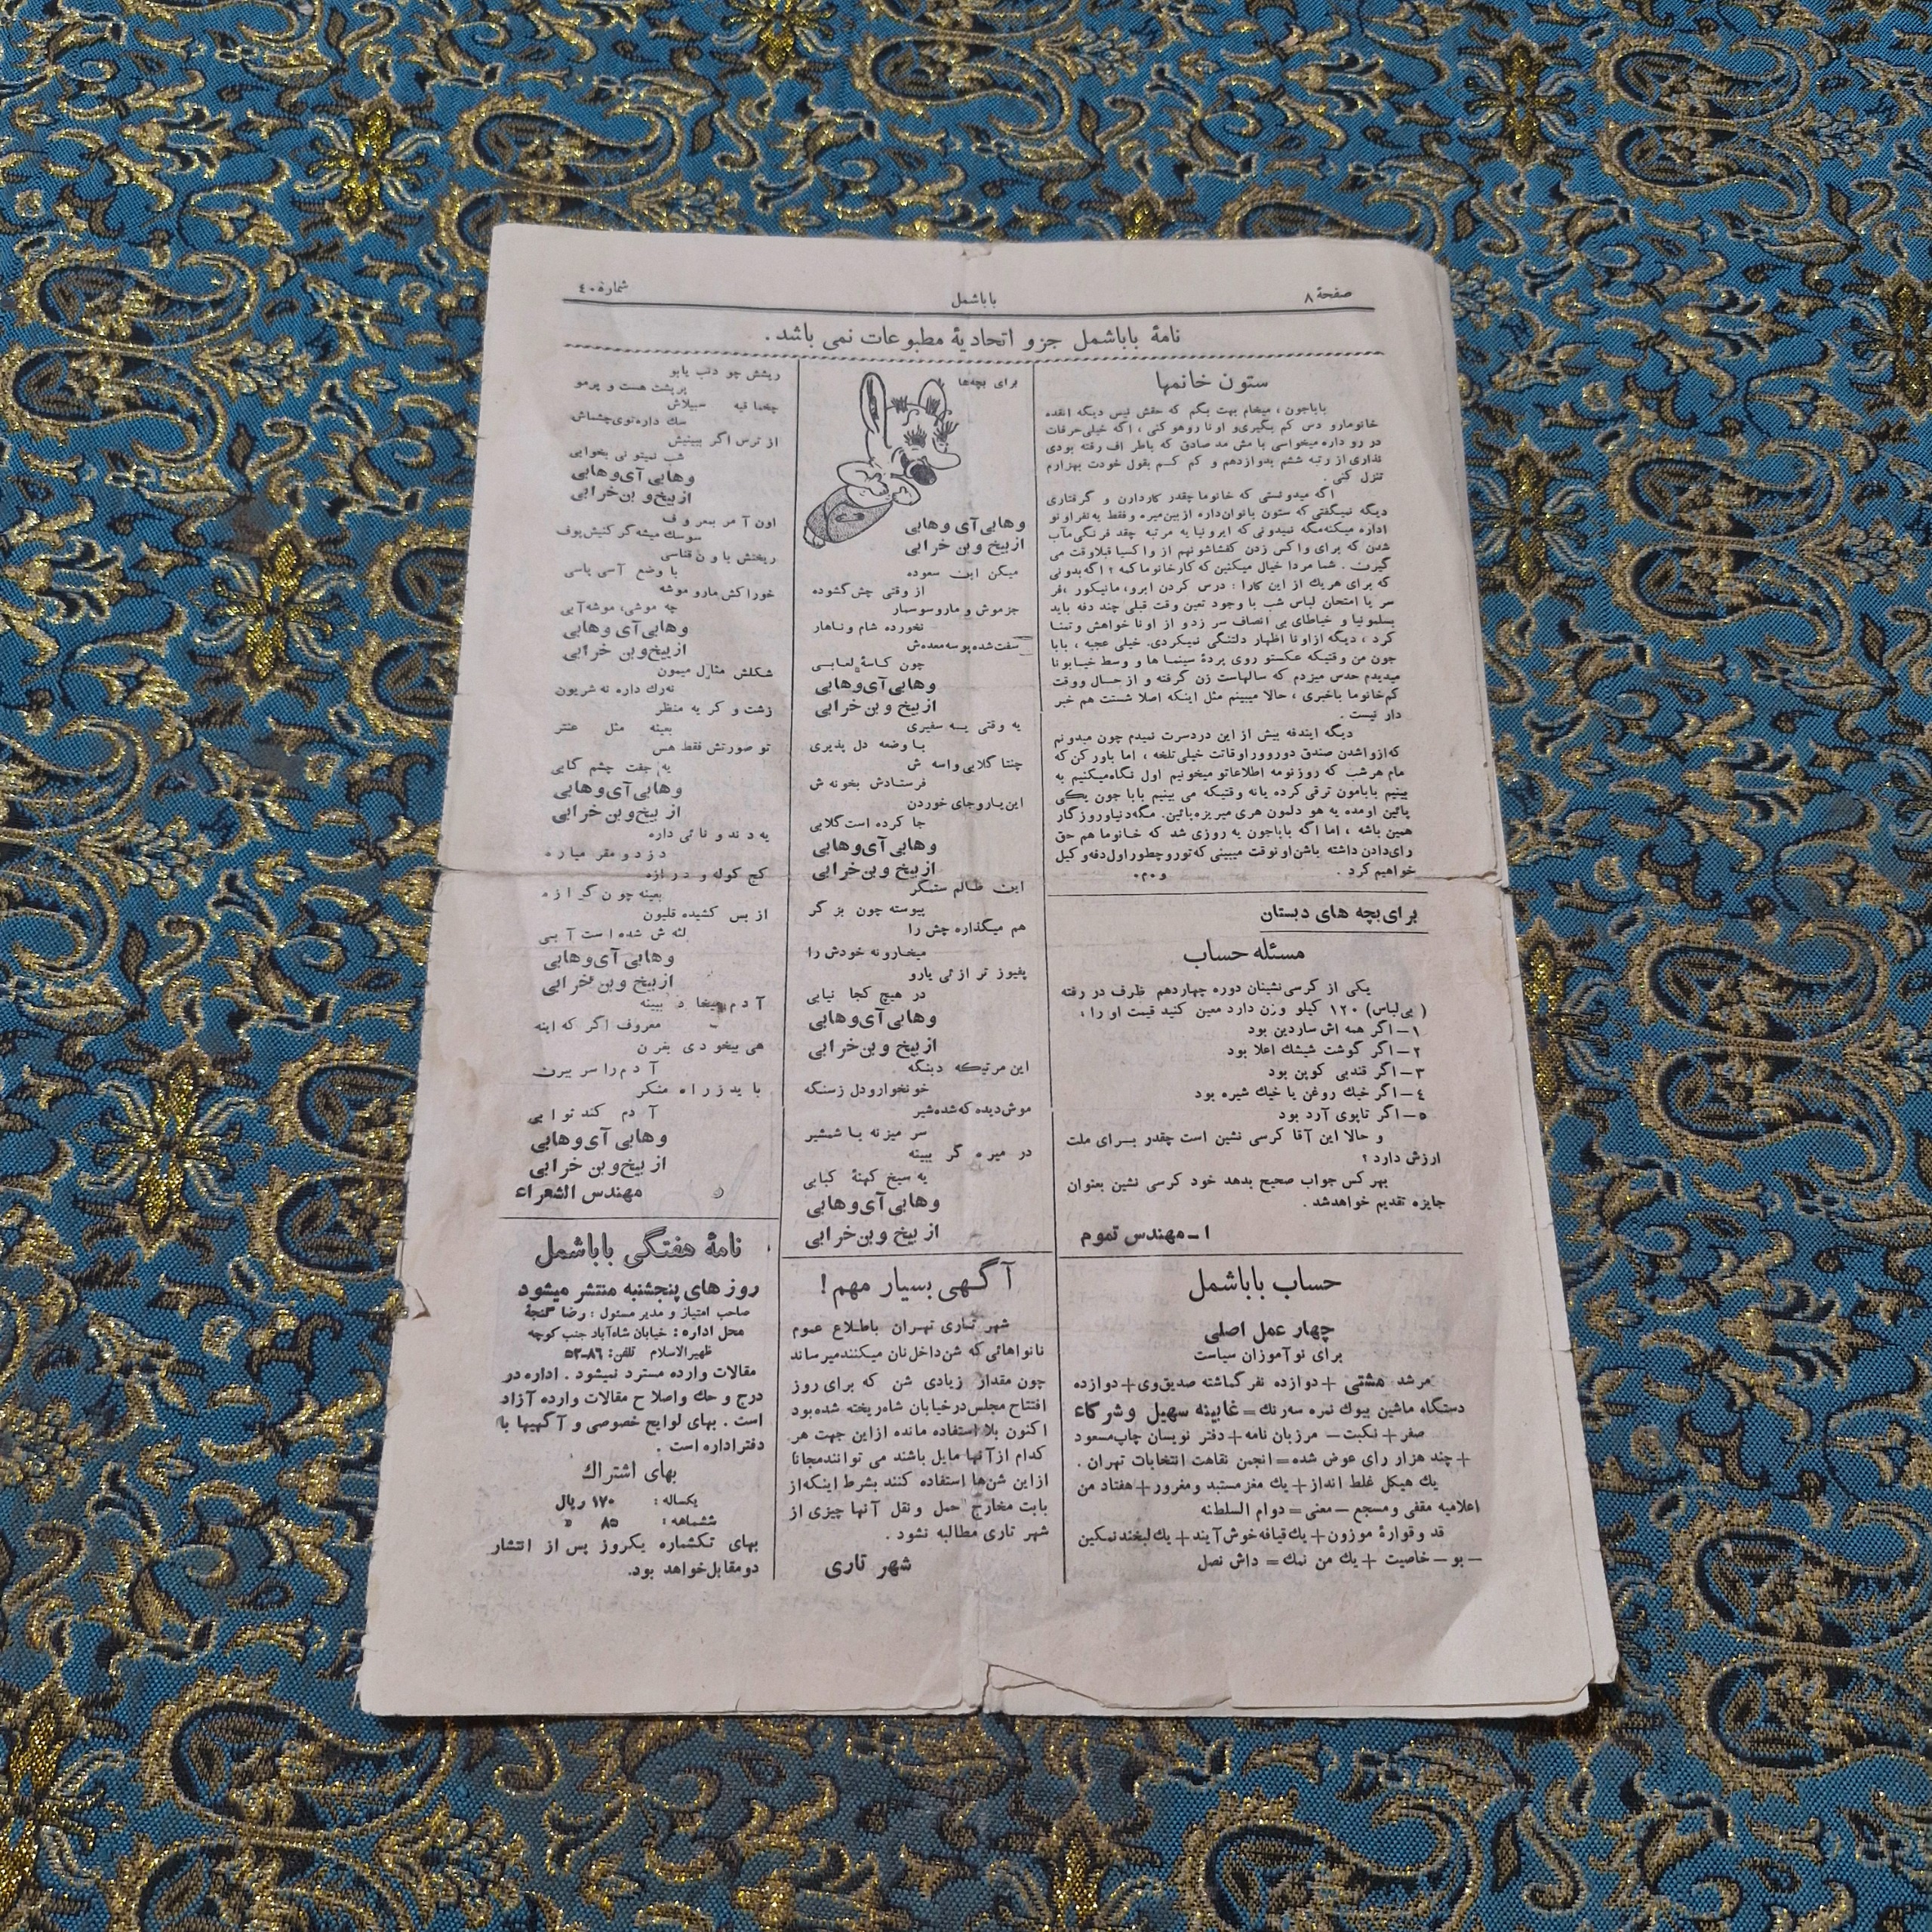 صفحهٔ ۸
باباشمل
شمارهٔ ۴۰
نامهٔ باباشمل جزو اتحادیهٔ مطبوعات نمی باشد.
ستون خانمها
باباجون، میخام بهت بگم که حقش نیس دیگه انقده
خانومارو دس کم بگیری و اونا روهو کنی، اگه خیلی حرفات
در رو داره میخواسی با مش مد صادق که باطر اف رفته بودی
نذاری از رتبه ششم بدوازدهم و کم کم بقول خودت بهزارم
تنزل کنی.
اگه میدونستی که خانوما چقدر کاردارن و گرفتاری
دیگه نمیگفتی که ستون بانوان داره از بین میره و فقط یه نفر اونو
اداره میکنه مگه نمیدونی که ایرونیا یه مرتبه چقد فرنگی مآب
شدن که برای واکس زدن کفشاشونهم از واکسیا قبلا وقت می
گیرن. شما مردا خیال میکنین که کار خانوما کمه؟ اگه بدونی
که برای هریك از این کارا: درس کردن ابرو، مانیکور، فر
سر یا امتحان لباس شب با وجود تعین وقت قبلی چند دفه باید
بسلمونیا و خیاطای بی انصاف سر زد و از اونا خواهش و تمنا
کرد، دیگه ازاونا اظهار دلتنگی نمیکردی. خیلی عجبه، بابا
جون من وقتیکه عکستو روی پردهٔ سینما ها و وسط خیابونا
میدیدم حدس میزدم که سالهاست زن گرفته و از حال ووقت
کم خانوما باخبری، حالا میبینم مثل اینکه اصلا شستت هم خبر
دار نیست.
دیگه ایندفه بیش از این دردسرت نمیدم چون میدونم
که ازواشدن صندق دوروور اوقاتت خیلی تلخه، اما باور کن که
مام هر شب که روزنومه اطلاعاتو میخونیم اول نگاه میکنیم به
بینیم بابامون ترقی کرده یانه وقتیکه می بینیم بابا جون یکی
پائین اومده یه هو دلمون هری میریزه پائین. مگه دنیاروزگار
همین باشه، اما اگه باباجون یه روزی شد که خانوما هم حق
رای دادن داشته باشن اونوقت میبینی که تورو چطور اول دفه وکیل
خواهیم کرد.
و.م.
برای بچه های دبستان
مسئله حساب
یکی از کرسی نشینان دوره چهاردهم ظرف در رفته
(بی لباس) ۱۲۰ کیلو وزن دارد معین کنید قیمت او را،
۱ـ اگر همه اش ساردین بود
۲ـ اگر گوشت شیشك اعلا بود
۳ـ اگر قندبی کوپن بود
۴ـ اگر خیك روغن یا خیك شیره بود
۵ـ اگر تاپوی آرد بود
و حالا این آقا کرسی نشین است چقدر برای ملت
ارزش دارد؟
بهر کس جواب صحیح بدهد خود کرسی نشین بعنوان
جایزه تقدیم خواهدشد.
ا ـ مهندس تموم
حساب باباشمل
چهار عمل اصلی
برای نوآموزان سیاست
مرشد مشتی + دوازده نفر گماشته صدیق وی + دوازده
دستگاه ماشین بیوك نمره سه رنك = غابینه سهیل وشرکاء
صفر + نکبت − مرزبان نامه + دفتر نویسان چاپ مسعود
+ چند هزار رای عوض شده = انجمن نقاهت انتخابات تهران.
یك هیکل غلط انداز + یك مغز مستبد و مغرور + هفتاد من
اعلامیه مقفی و مسجع − معنی = دوام السلطنه
قد و قوارهٔ موزون + یك قیافه خوش آیند + یك لبخند نمکین
− بو − خاصیت + یك من نمك = داش نصل
برای بچه‌ها
وهابی آی وهابی
از بیخ و بن خرابی
میگن ابن سعوده
از وقتی چش گشوده
جز موش و مارو سوسمار
نخورده شام و ناهار
سفت شده پوسه معده‌ش
چون کاسهٔ لعابی
وهابی آی وهابی
از بیخ و بن خرابی
یه وقتی یه سفیری
با وضعه دل پذیری
چنتا گلابی واسه ش
فرستادش بخونه ش
این یارو جای خوردن
جا کرده است گلابی
وهابی آی وهابی
از بیخ و بن خرابی
این ظالم ستمگر
پیوسته چون بز گر
هم میگذاره چش را
میخارونه خودش را
پفیوز تر ازئی یارو
در هیچ کجا نیابی
وهابی آی وهابی
از بیخ و بن خرابی
این مرتیکه دبنگه
خونخوارودل زسنگه
موش دیده که شده شیر
سر میزنه با شمشیر
در میره گر ببینه
یه سیخ کهنهٔ کبابی
وهابی آی وهابی
از بیخ و بن خرابی
آگهی بسیار مهم!
شهر تاری تهران باطلاع عموم
نانواهائی که شن داخل نان میکنند میرساند
چون مقدار زیادی شن که برای روز
افتتاح مجلس در خیابان شاه ریخته شده بود
اکنون بلا استفاده مانده ازاین جهت هر
کدام از آنها مایل باشند می توانند مجانا
از این شن‌ها استفاده کنند بشرط اینکه از
بابت مخارج حمل و نقل آنها چیزی از
شهر تاری مطالبه نشود.
شهر تاری
ریشش چو دنب یابو
پرپشت هست و پرمو
چخماقیه سبیلاش
سك داره توی چشماش
از ترس اگر ببینیش
شب نمیتونی بخوابی
وهابی آی وهابی
از بیخ و بن خرابی
اون آمر بمعروف
سوسك میشه گر کنیش پوف
ریختش با ون قناسی
با وضع آسی پاسی
خوراکش مارو موشه
چه موشی، موشه آبی
وهابی آی وهابی
از بیخ و بن خرابی
شکلش مثال میمون
نه رك داره نه شریون
زشت و کریه منظر
بعینه مثل عنتر
تو صورتش فقط هس
یه جفت چشم گابی
وهابی آی وهابی
از بیخ و بن خرابی
یه دندونائی داره
دزدومقر میاره
کج کوله و درازه
بعینه چون گرازه
از بس کشیده قلیون
لثه ش شده است آبی
وهابی آی وهابی
از بیخ و بن خرابی
آدم میخاد ببینه
معروف اگر که اینه
هی بیخودی بغرن
آدم راسر ببرن
باید زراه منکر
آدم کند ثوابی
وهابی آی وهابی
از بیخ و بن خرابی
مهندس الشعراء
نامهٔ هفتگی باباشمل
روز های پنجشنبه منتشر میشود
صاحب امتیاز و مدیر مسئول: رضا گنجهٔ
محل اداره: خیابان شاه‌آباد جنب کوچه
ظهیرالاسلام تلفن: ۸۶ـ۵۲
مقالات وارده مسترد نمیشود. اداره در
درج و حك و اصلاح مقالات وارده آزاد
است. بهای لوایح خصوصی و آگهیها با
دفتر اداره است.
بهای اشتراك
یکساله: ۱۷۰ ریال
ششماهه: ۸۵ »
بهای تکشماره یکروز پس از انتشار
دومقابل خواهد بود.